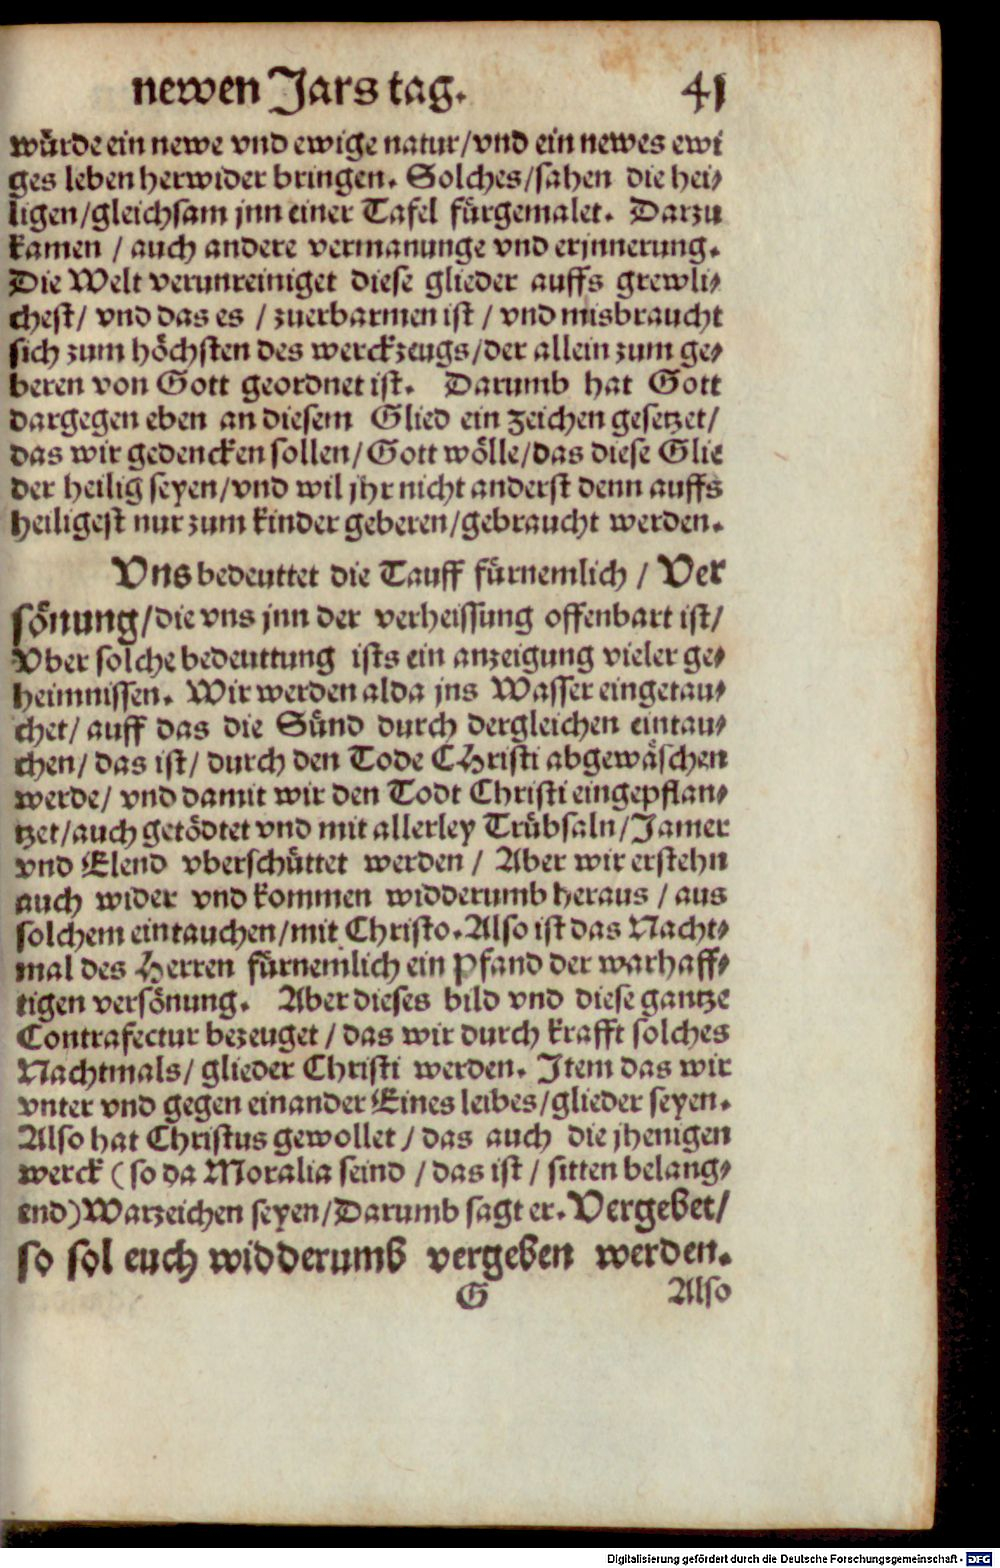 newen Jars tag. 41
würde ein newe vnd ewige natur/vnd ein newes ewi
ges leben herwider bringen. Solches/sahen die hei-
ligen/gleichsam jnn einer Tafel fürgemalet. Darzu
kamen / auch andere vermanunge vnd erjnnerung.
Die Welt verunreiniget diese glieder auffs grewli-
chest/ vnd das es / zuerbarmen ist / vnd misbraucht
sich zum höchsten des werckzeugs/der allein zum ge-
beren von Gott geordnet ist. Darumb hat Gott
dargegen eben an diesem Glied ein zeichen gesetzet/
das wir gedencken sollen/Gott wölle/das diese Glie
der heilig seyen/vnd wil jhr nicht anderst denn auffs
heiligest nur zum kinder geberen/gebraucht werden.
Vns bedeuttet die Tauff fürnemlich / Ver
sönung/die vns jnn der verheissung offenbart ist/
Vber solche bedeuttung ists ein anzeigung vieler ge-
heimnissen. Wir werden alda jns Wasser eingetau-
chet/ auff das die Sünd durch dergleichen eintau-
chen/ das ist/ durch den Tode CHristi abgewäschen
werde/ vnd damit wir den Todt Christi eingepflan-
tzet/auch getödtet vnd mit allerley Trübsaln/Jamer
vnd Elend vberschüttet werden / Aber wir erstehn
auch wider vnd kommen widderumb heraus / aus
solchem eintauchen/mit Christo. Also ist das Nacht-
mal des Herren fürnemlich ein Pfand der warhaff-
tigen versönung. Aber dieses bild vnd diese gantze
Contrafectur bezeuget / das wir durch krafft solches
Nachtmals/ glieder Christi werden. Item das wir
vnter vnd gegen einander Eines leibes/glieder seyen.
Also hat Christus gewollet / das auch die jhenigen
werck (so da Moralia seind / das ist / sitten belang-
end) Warzeichen seyen/Darumb sagt er. Vergebet/
so sol euch widderumb vergeben werden.
G Also
Digitalisierung gefördert durch die Deutsche Forschungsgemeinschaft - DFG